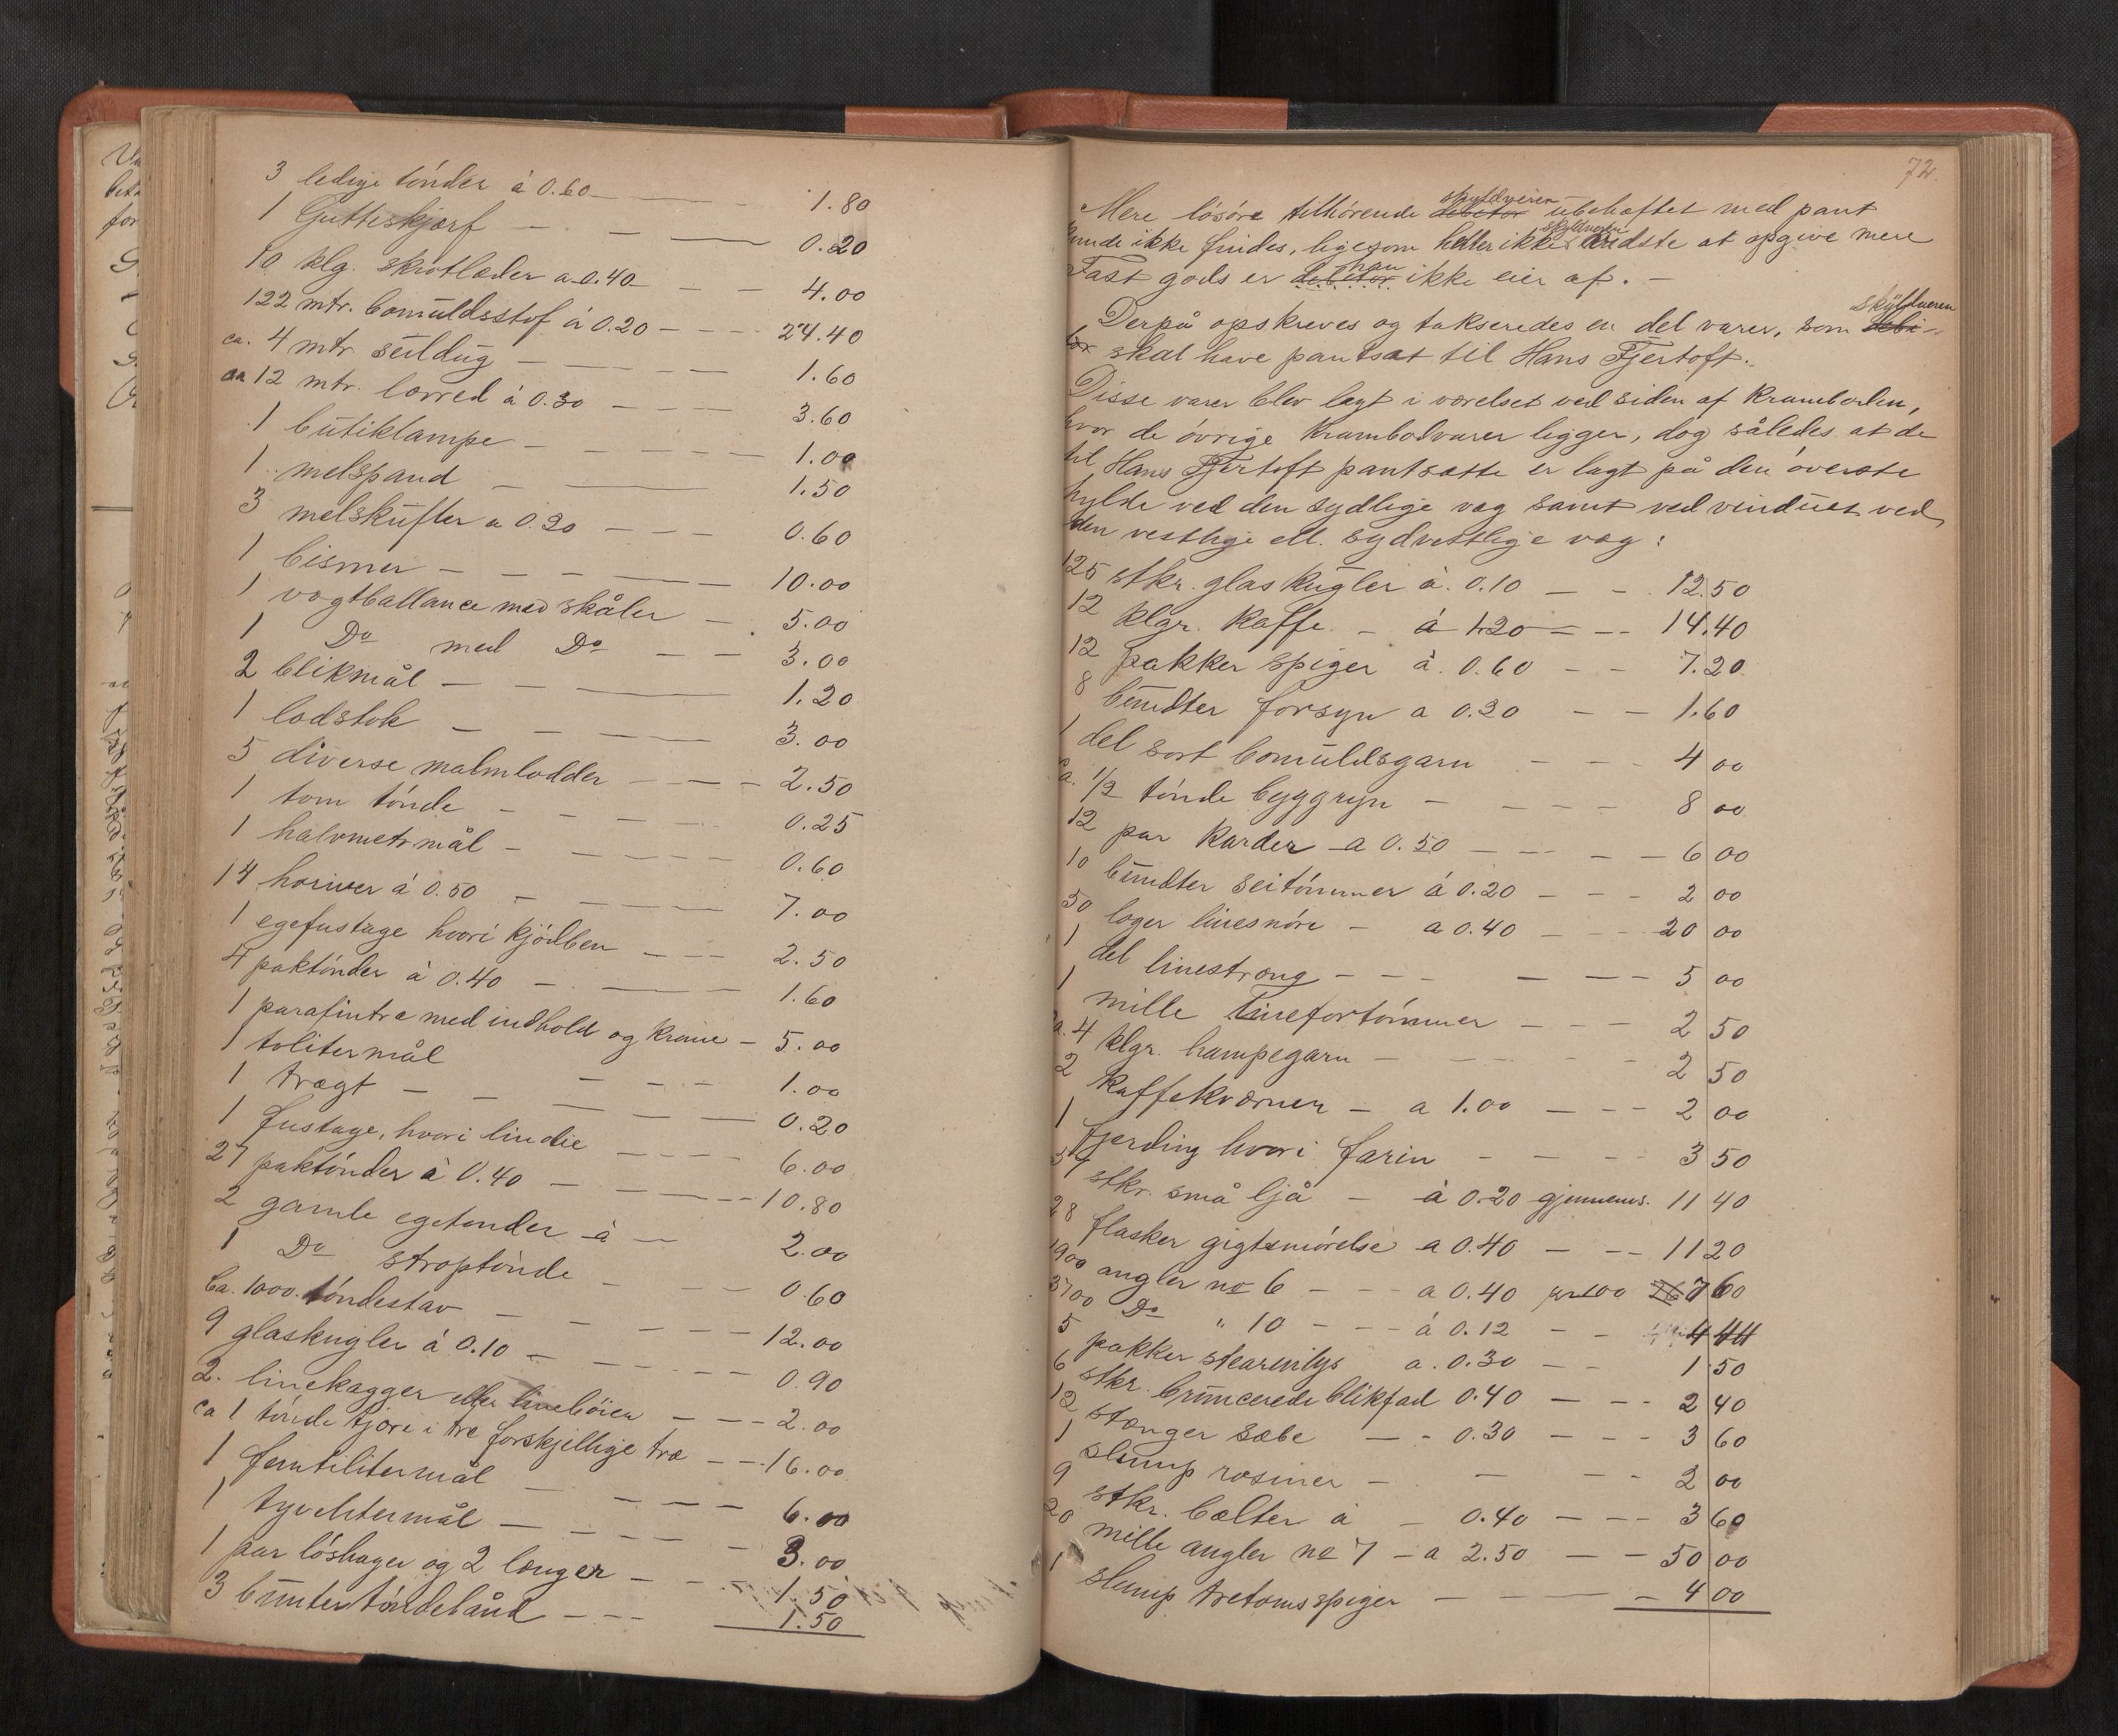 3 ledige tónder á 0.60 — 1.80
1 Gutteskjærf — 0.20
10 klg. skrotlæder a 0.40 — 4.00
122 mtr. bomuldsstof á 0.20 — 24.40
ca. 4 mtr seildug — 1.60
ca 12 mtr. lærred á 0.30 — 3.60
1 butiklampe — 1.00
1 melspand — 1.50
3 melskufler a 0.20 — 0.60
1 bismer — 10.00
1 vægtballance med skåler — 5.00
1 Do med Do — 3.00
2 blikmål — 1.20
1 lodstok — 3.00
5 diverse malmlodder — 2.50
1 tom tónde — 0.25
1 halvmetrmål — 0.60
14 høriver á 0.50 — 7.00
1 egefustage hvori kjódben — 2.50
4 paktónder á 0.40 — 1.60
1 parafintræ med indhold og krane — 5.00
1 tolitermål — 1.00
1 trægt — 0.20
1 fustage, hvori lindie — 6.00
27 paktónder á 0.40 — 10.80
2 gamle egetønder á — 2.00
1 Do stroptónde — 0.60
Ca. 1000 tóndestav — 12.00
9 glaskugler á 0.10 — 0.90
2. linekagger eller linebóier — 2.00
ca 1 tónde tjære i tre forskjellige træ — 16.00
1 femtilitermål — 6.00
1 tyvelitermål — 3.00
1 par lóshager og 2 længer — 1.50
3 bunter tóndebånd — 1.50
72
Mere lósóre tilhórende debetor skyldneren ubehæftet med pant
kunde ikke findes, ligesom heller ikke skyldneren vidste at opgive mere
Fast gods er debetor han ikke eier af. —
Derpå opskreves og takseredes en del varer, som debi- skyldneren
tor skal have pantsat til Hans Fjertoft.
Disse varer blev lagt i værelset ved siden af kramboden,
hvor de óvrige krambodvarer ligger, dog således at de
til Hans Fjertoft pantsatte er lagt på den óverste
hylde ved den sydlige væg samt ved vinduet ved
den vestlige ell. sydvestlige væg:
125 stkr. glaskugler á. 0.10 — 12.50
12 klgr. kaffe — á 1.20 — 14.40
12 pakker spiger á. 0.60 — 7.20
8 bundter forsyn a 0.20 — 1.60
1 del sort bomuldsgarn — 4 00
Ca. 1/2 tónde byggryn — 8 00
12 par karder a 0.50 — 6 00
10 bundter seitómmer á 0.20 — 2 00
50 loger linesnóre — a 0.40 — 20 00
1 del linestræng — 5 00
1 mille linefortómmer — 2 50
ca. 4 klgr. hampegarn — 2 50
2 kaffekværner — a 1.00 — 2 00
1 fjerding hvori farin — 3 50
57 stkr. små ljå — á 0.20 gjennems. 11 40
28 flasker gigtsmórelse a 0.40 — 11 20
1900 angler no 6 — a 0.40 pr 100 7 60
3700 Do " 10 — á 0.12 — 4 44
5 pakker stearinlys a. 0.30 — 1 50
6 stkr. brúncerede blikfad 0.40 — 2 40
12 stænger sæbe — 0.30 — 3 60
1 slump rosiner — 2 00
9 stkr. bælter á — 0.40 — 3 60
20 mille angler no 7 — a 2.50 — 50 00
1 slump tretomsspiger — 4 00